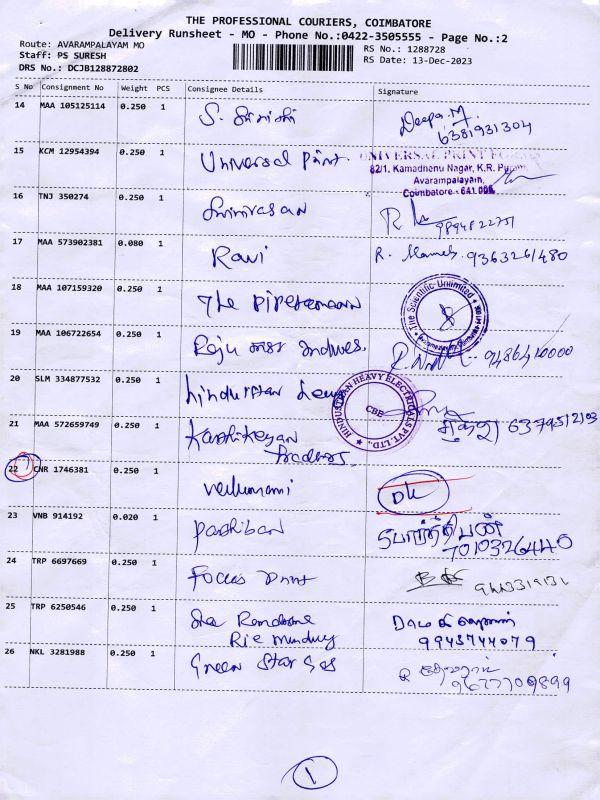 THE PROFESSIONAL COURIERS, COIMBATORE
Delivery Runsheet - MO - Phone No.:0422-3505555 - Page No.:2
Route: AVARAMPALAYAM MO
RS No.: 1288728
Staff: PS SURESH
RS Date: 13-Dec-2023
DRS No.: DCJB128872802
S No Consignment No Weight PCS Consignee Details Signature
14 MAA 105125114 0.250 1 S. Deepa.M.
6381931304
15 KCM 12954394 0.250 1 Universal Print. UNIVERSAL PRINT
82/1, Kamadhenu Nagar, K.R. Puram,
Avarampalayam,
Coimbatore - 641 006.
16 TNJ 350274 0.250 1 Srinivasan 9894822751
17 MAA 573902381 0.080 1 Ravi R. 9363261480
18 MAA 107159320 0.250 1 The The Scientific Unlimited
19 MAA 106722654 0.250 1 Raju 9486410000
20 SLM 334877532 0.250 1 hindustan HINDUSTAN HEAVY ELECTRICALS PVT. LTD.,
CBE
21 MAA 572659749 0.250 1 Karthikeyan 6379512103
Traders.
22 CNR 1746381 0.250 1 DK
23 VNB 914192 0.020 1 parthiban பார்த்திபன்
7010326440
24 TRP 6697669 0.250 1 Focus Print
25 TRP 6250546 0.250 1 Sree
9943744079
26 NKL 3281988 0.250 1 Green Star Gas
9677709899
1